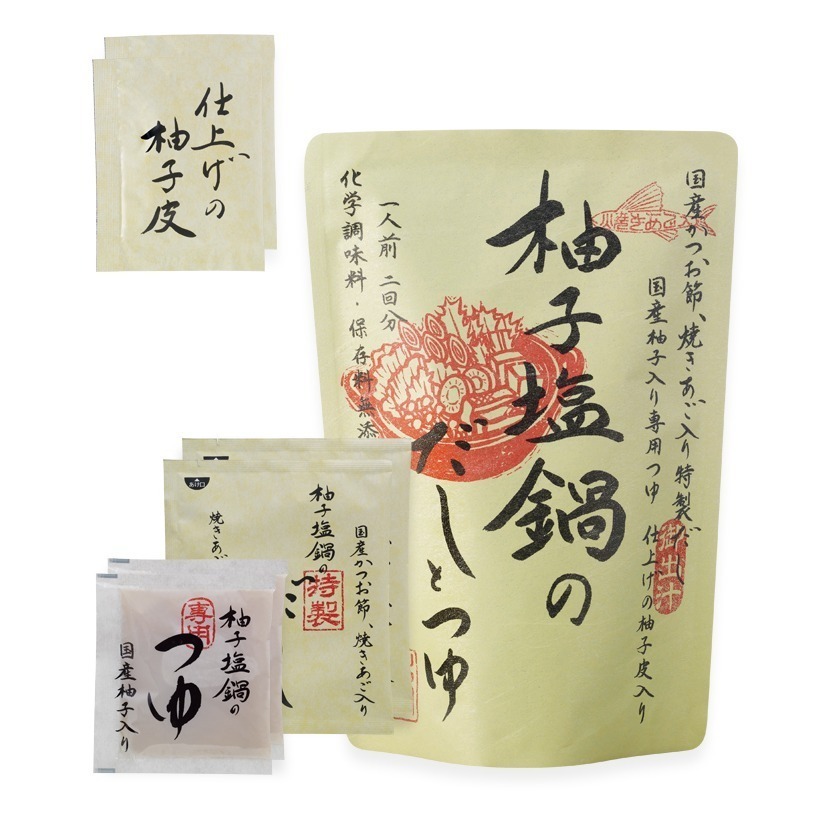 仕上げの
柚子皮
国産かつお節、焼きあご入り特製だし
国産柚子入り専用つゆ 仕上げの柚子皮入り
柚子塩鍋の
だしとつゆ
一人前 二回分
化学調味料・保存料無添
御出汁
あけ口
国産かつお節、焼きあご入り
柚子塩鍋の
特製
焼きあご
柚子塩鍋の
専用
つゆ
国産柚子入り